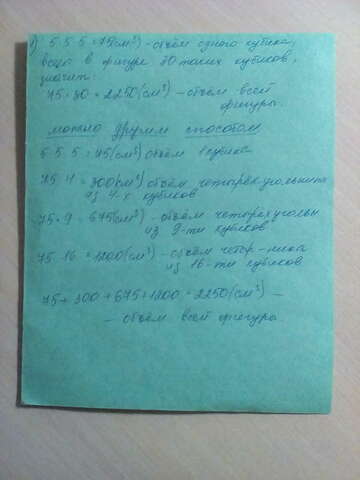 1) 5·5·5=75(см³) - объём одного кубика,
всего в фигуре 30 таких кубиков,
значит:
75·30=2250(см³) - объём всей
фигуры.
можно другим способом
5·5·5=75(см³) объём 1 кубика
75·4=300(см³) объём четырёхугольника
из 4-х кубиков
75·9=675(см³) - объём четырёхугольн
из 9-ти кубиков
75·16=1200(см³) - объём четыр-ника
из 16-ти кубиков
75+300+675+1200=2250(см³) -
- объём всей фигуры